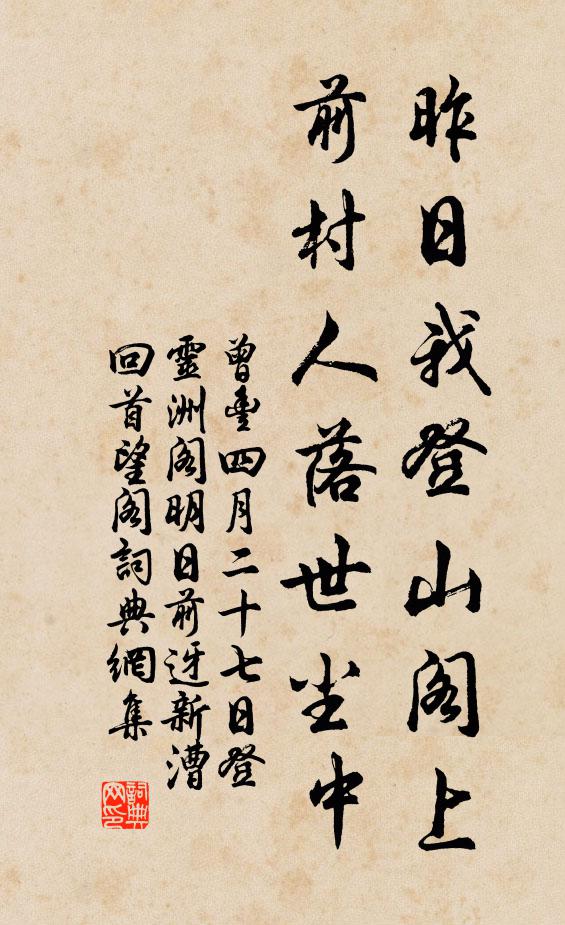 昨日我登山阁上
前村人落世尘中
曾豊四月二十七日登
靈洲阁明日前迓新漕
回首望阁詞典網集
詞典
网印